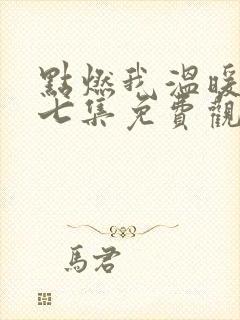 點燃我,溫暖
七集免費觀
馬君